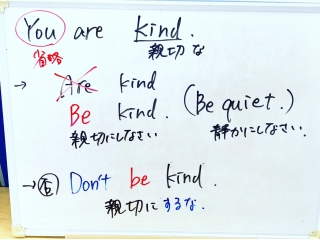 You are kind.
省略 親切な
→ Are kind
Be kind. (Be quiet.)
親切にしなさい 静かにしなさい.
→ 否 Don't be kind.
親切にするな.